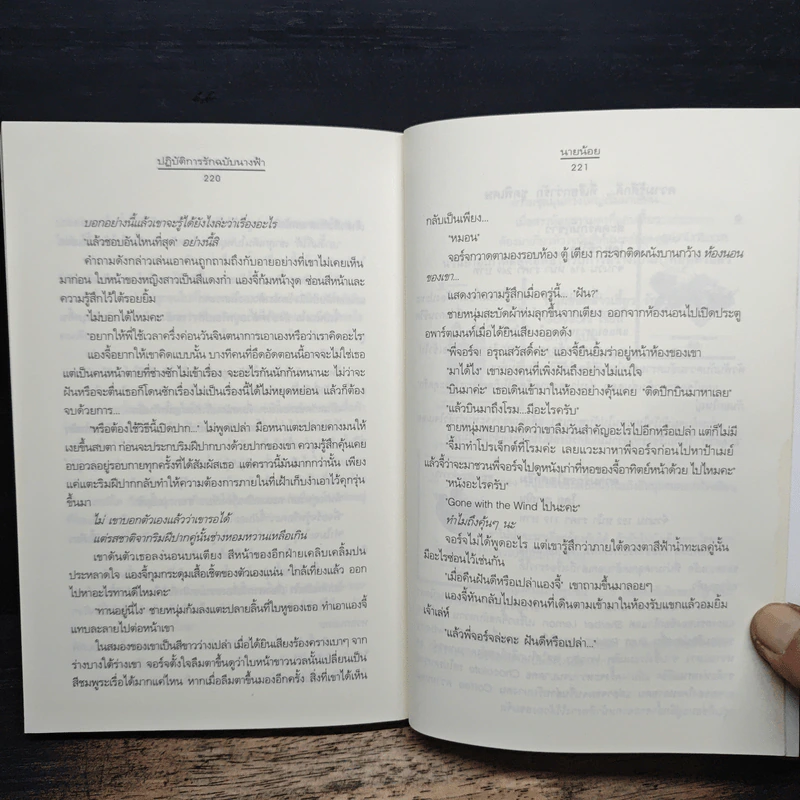 ปฏิบัติการรักฉบับนางฟ้า
220
บอกอย่างนี้แล้วเขาจะรู้ได้ยังไงล่ะว่าเรื่องอะไร
"แล้วชอบอันไหนที่สุด" อย่างนี้สิ
คำถามดังกล่าวเล่นเอาคนถูกถามถึงกับอายอย่างที่เขาไม่เคยเห็น
มาก่อน ใบหน้าของหญิงสาวเป็นสีแดงก่ำ แองจี้ก้มหน้างุด ซ่อนสีหน้าและ
ความรู้สึกไว้ใต้รอยยิ้ม
"ไม่บอกได้ไหมคะ"
"อยากให้พี่ใช้เวลาครึ่งค่อนวันจินตนาการเอาเองหรือว่าเราคิดอะไร"
แองจี้อยากให้เขาคิดแบบนั้น บางทีคนที่อึดอัดตอนนี้อาจจะไม่ใช่เธอ
แต่เป็นคนหน้าตายที่ช่างซักไม่เข้าเรื่อง จะอะไรกันนักกันหนานะ ไม่ว่าจะ
ฝันหรือจะตื่นเธอก็โดนซักเรื่องไม่เป็นเรื่องนี้ได้ไม่หยุดหย่อน แล้วก็ต้อง
จบด้วยการ...
"หรือต้องใช้วิธีนี้เปิดปาก..." ไม่พูดเปล่า มือหนาแตะปลายคางมนให้
เงยขึ้นสบตา ก่อนจะประกบริมฝีปากบางด้วยปากของเขา ความรู้สึกคุ้นเคย
อบอวลอยู่รอบกายทุกครั้งที่ได้สัมผัสเธอ แต่คราวนี้มันมากกว่านั้น เพียง
แค่แตะริมฝีปากกลับทำให้ความต้องการภายในที่เฝ้าเก็บงำเอาไว้คุกรุ่น
ขึ้นมา
ไม่ เขาบอกตัวเองแล้วว่าเขารอได้
แต่รสชาติจากริมฝีปากคู่นั้นช่างหอมหวานเหลือเกิน
เขาดันตัวเธอลงนอนบนเตียง สีหน้าของอีกฝ่ายเคลิบเคลิ้มปน
ประหลาดใจ แองจี้กุมกระดุมเสื้อเชิ้ตของตัวเองแน่น "ใกล้เที่ยงแล้ว ออก
ไปหาอะไรทานดีไหมคะ"
"ทานอยู่นี่ไง" ชายหนุ่มก้มลงแตะปลายลิ้นที่ใบหูของเธอ ทำเอาแองจี้
แทบละลายไปต่อหน้าเขา
ในสมองของเขาเป็นสีขาวว่างเปล่า เมื่อได้ยินเสียงร้องครางเบาๆ จาก
ร่างบางใต้ร่างเขา จอร์จตั้งใจลืมตาขึ้นดูว่าใบหน้าขาวนวลนั้นเปลี่ยนเป็น
สีชมพูระเรื่อได้มากแค่ไหน หากเมื่อลืมตาขึ้นมองอีกครั้ง สิ่งที่เขาได้เห็น
นายน้อย
221
กลับเป็นเพียง...
"หมอน"
จอร์จกวาดตามองรอบห้อง ตู้ เตียง กระจกติดผนังบานกว้าง ห้องนอน
ของเขา...
แสดงว่าความรู้สึกเมื่อครู่นี้... "ฝัน?"
ชายหนุ่มสะบัดผ้าห่มลุกขึ้นจากเตียง ออกจากห้องนอนไปเปิดประตู
อพาร์ตเมนท์เมื่อได้ยินเสียงออดดัง
"พี่จอร์จ อรุณสวัสดิ์ค่ะ" แองจี้ยืนยิ้มร่าอยู่หน้าห้องของเขา
"มาได้ไง" เขามองคนที่เพิ่งฝันถึงอย่างไม่แน่ใจ
"บินมาค่ะ" เธอเดินเข้ามาในห้องอย่างคุ้นเคย "ติดปีกบินมาหาเลย"
"แล้วบินมาถึงโรม...มีอะไรครับ"
ชายหนุ่มพยายามคิดว่าเขาลืมวันสำคัญอะไรไปอีกหรือเปล่า แต่ก็ไม่มี
"จี้มาทำโปรเจ็กต์ที่โรมค่ะ เลยแวะมาหาพี่จอร์จก่อนไปหาป้าเมย์
แล้วจี้ว่าจะมาชวนพี่จอร์จไปดูหนังเก่าที่หอของจี้อาทิตย์หน้าด้วย ไปไหมคะ"
"หนังอะไรครับ"
"Gone with the Wind ไปนะคะ"
ทำไมถึงคุ้นๆ นะ
จอร์จไม่ได้พูดอะไร แต่เขารู้สึกว่าภายใต้ดวงตาสีฟ้าน้ำทะเลคู่นั้น
มีอะไรซ่อนไว้เช่นกัน
"เมื่อคืนฝันดีหรือเปล่าแองจี้" เขาถามขึ้นมาลอยๆ
แองจี้หันกลับไปมองคนที่เดินตามเข้ามาในห้องรับแขกแล้วอมยิ้ม
เจ้าเล่ห์
"แล้วพี่จอร์จล่ะคะ ฝันดีหรือเปล่า..."